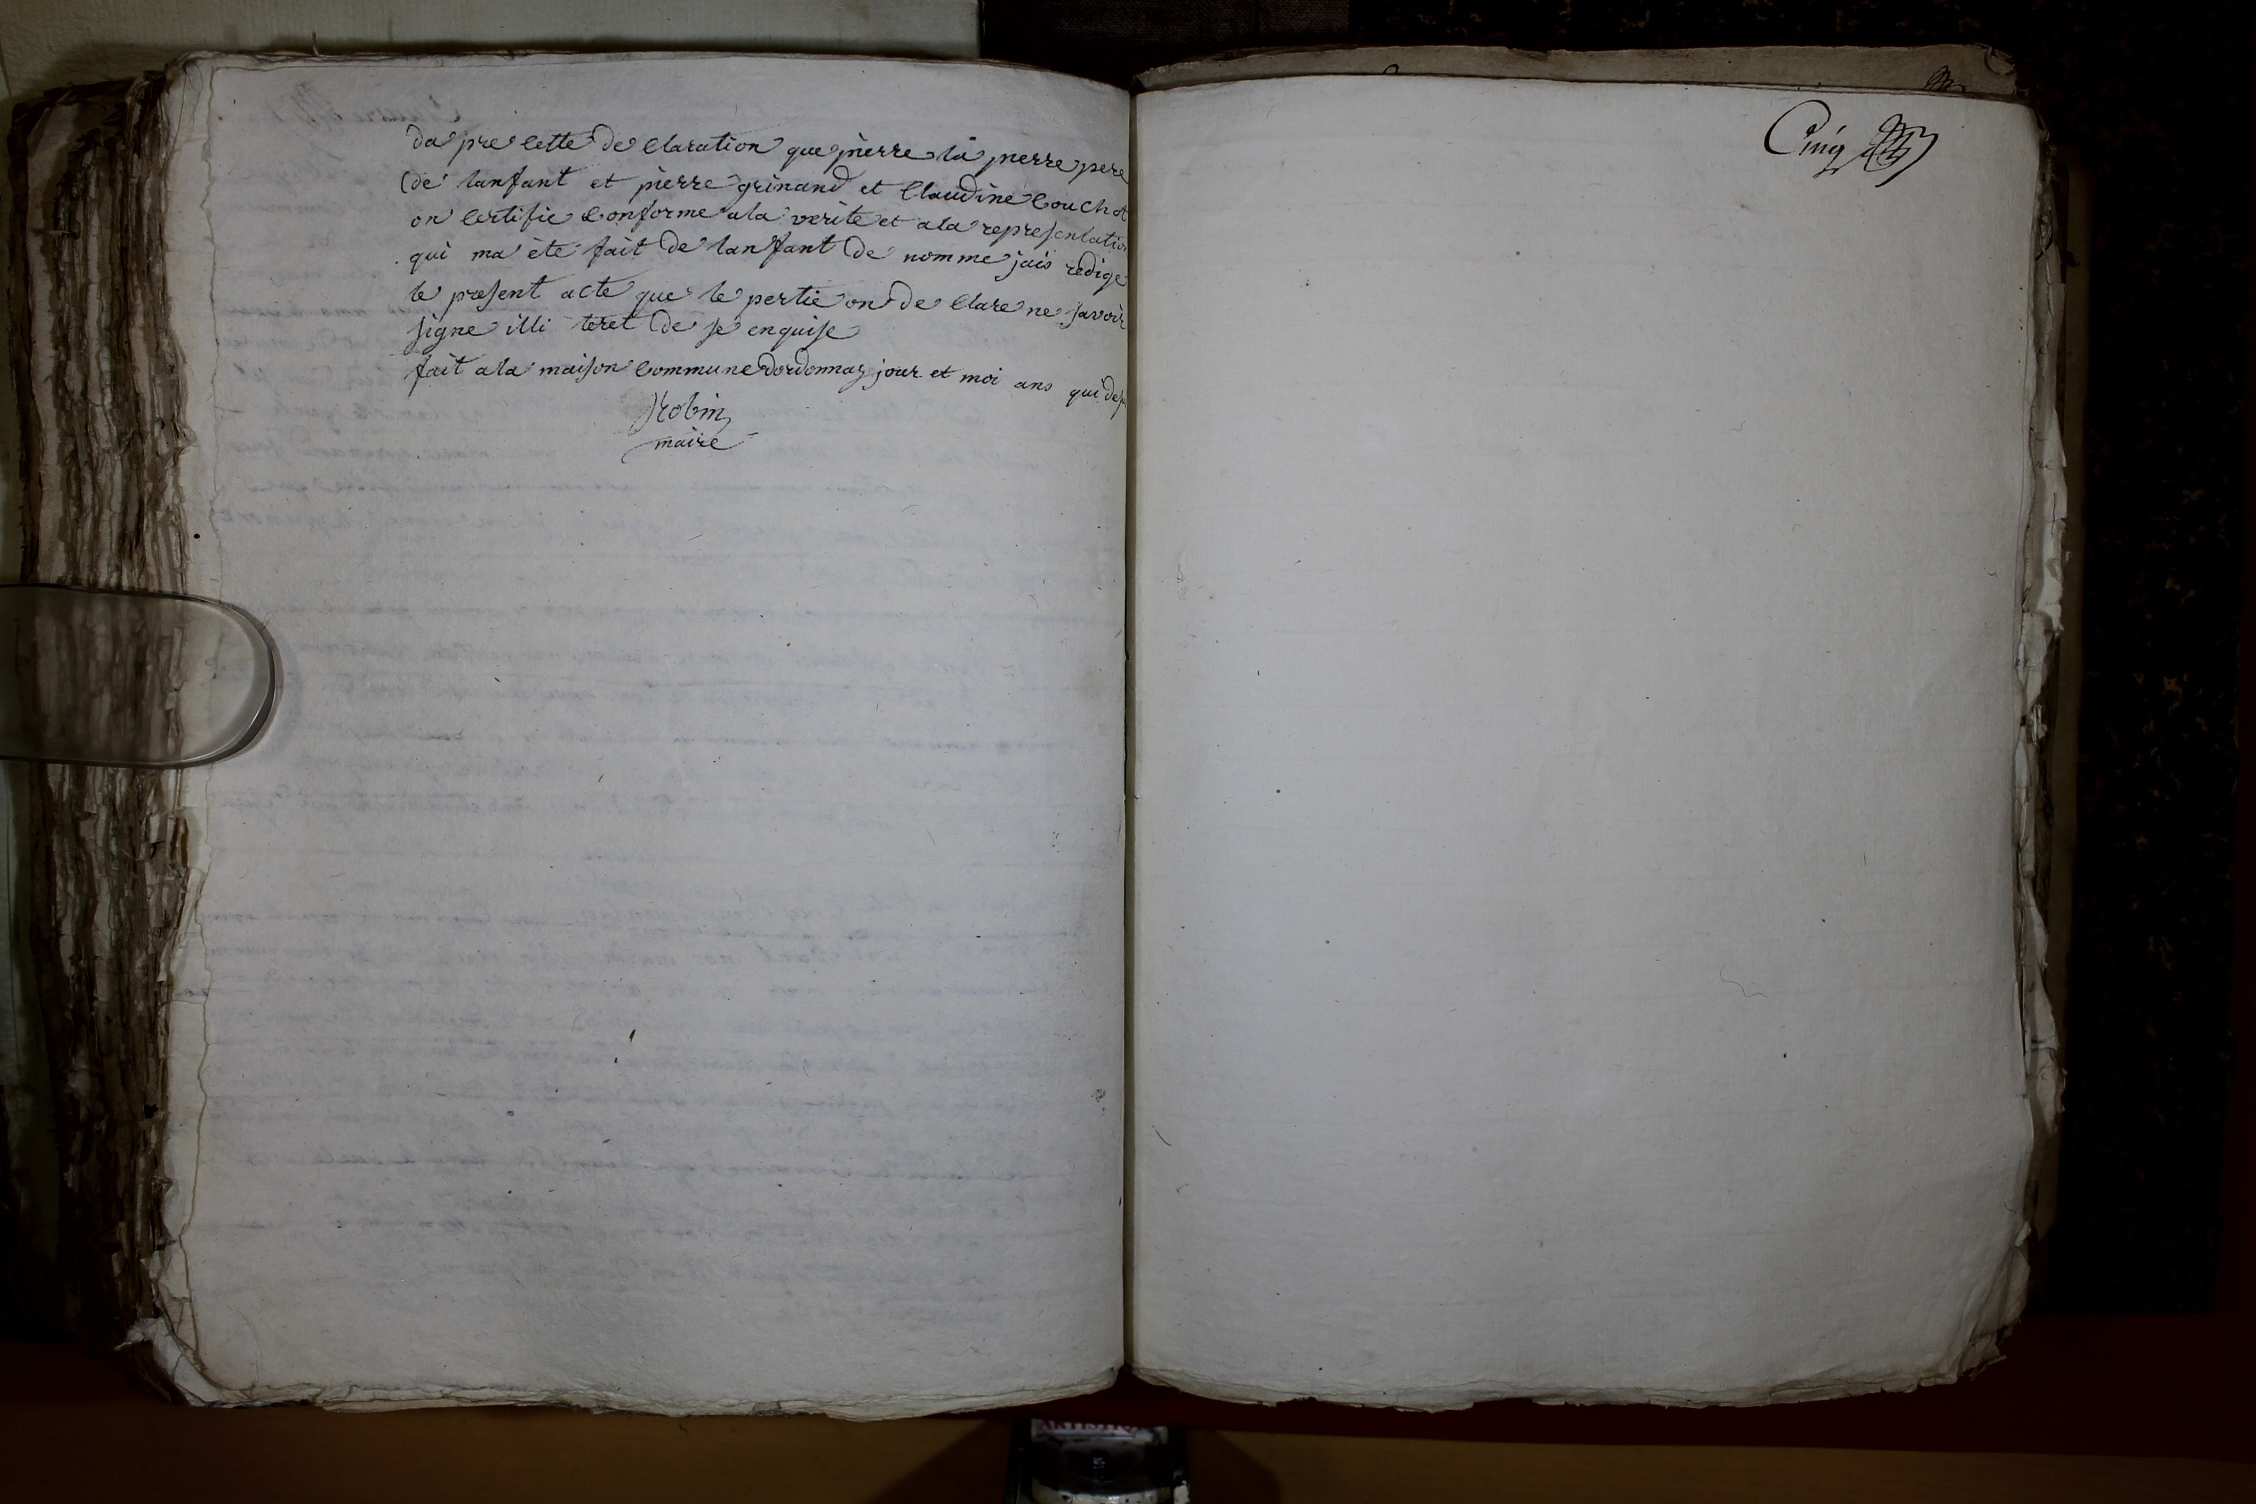 da pre cette de claration que pierre la pierre pere
de lanfant et pierre grinand et Claudine Couchot
on certifie conforme a la verite et a la representation
qui ma ete fait de lanfant de nomme jais redige
le present acte que le pertie on de clare ne savoir
signe illi teret de se enquise
fait a la maison commune dordonnaz jour et moi ans que des
Robin
maire
Cinq